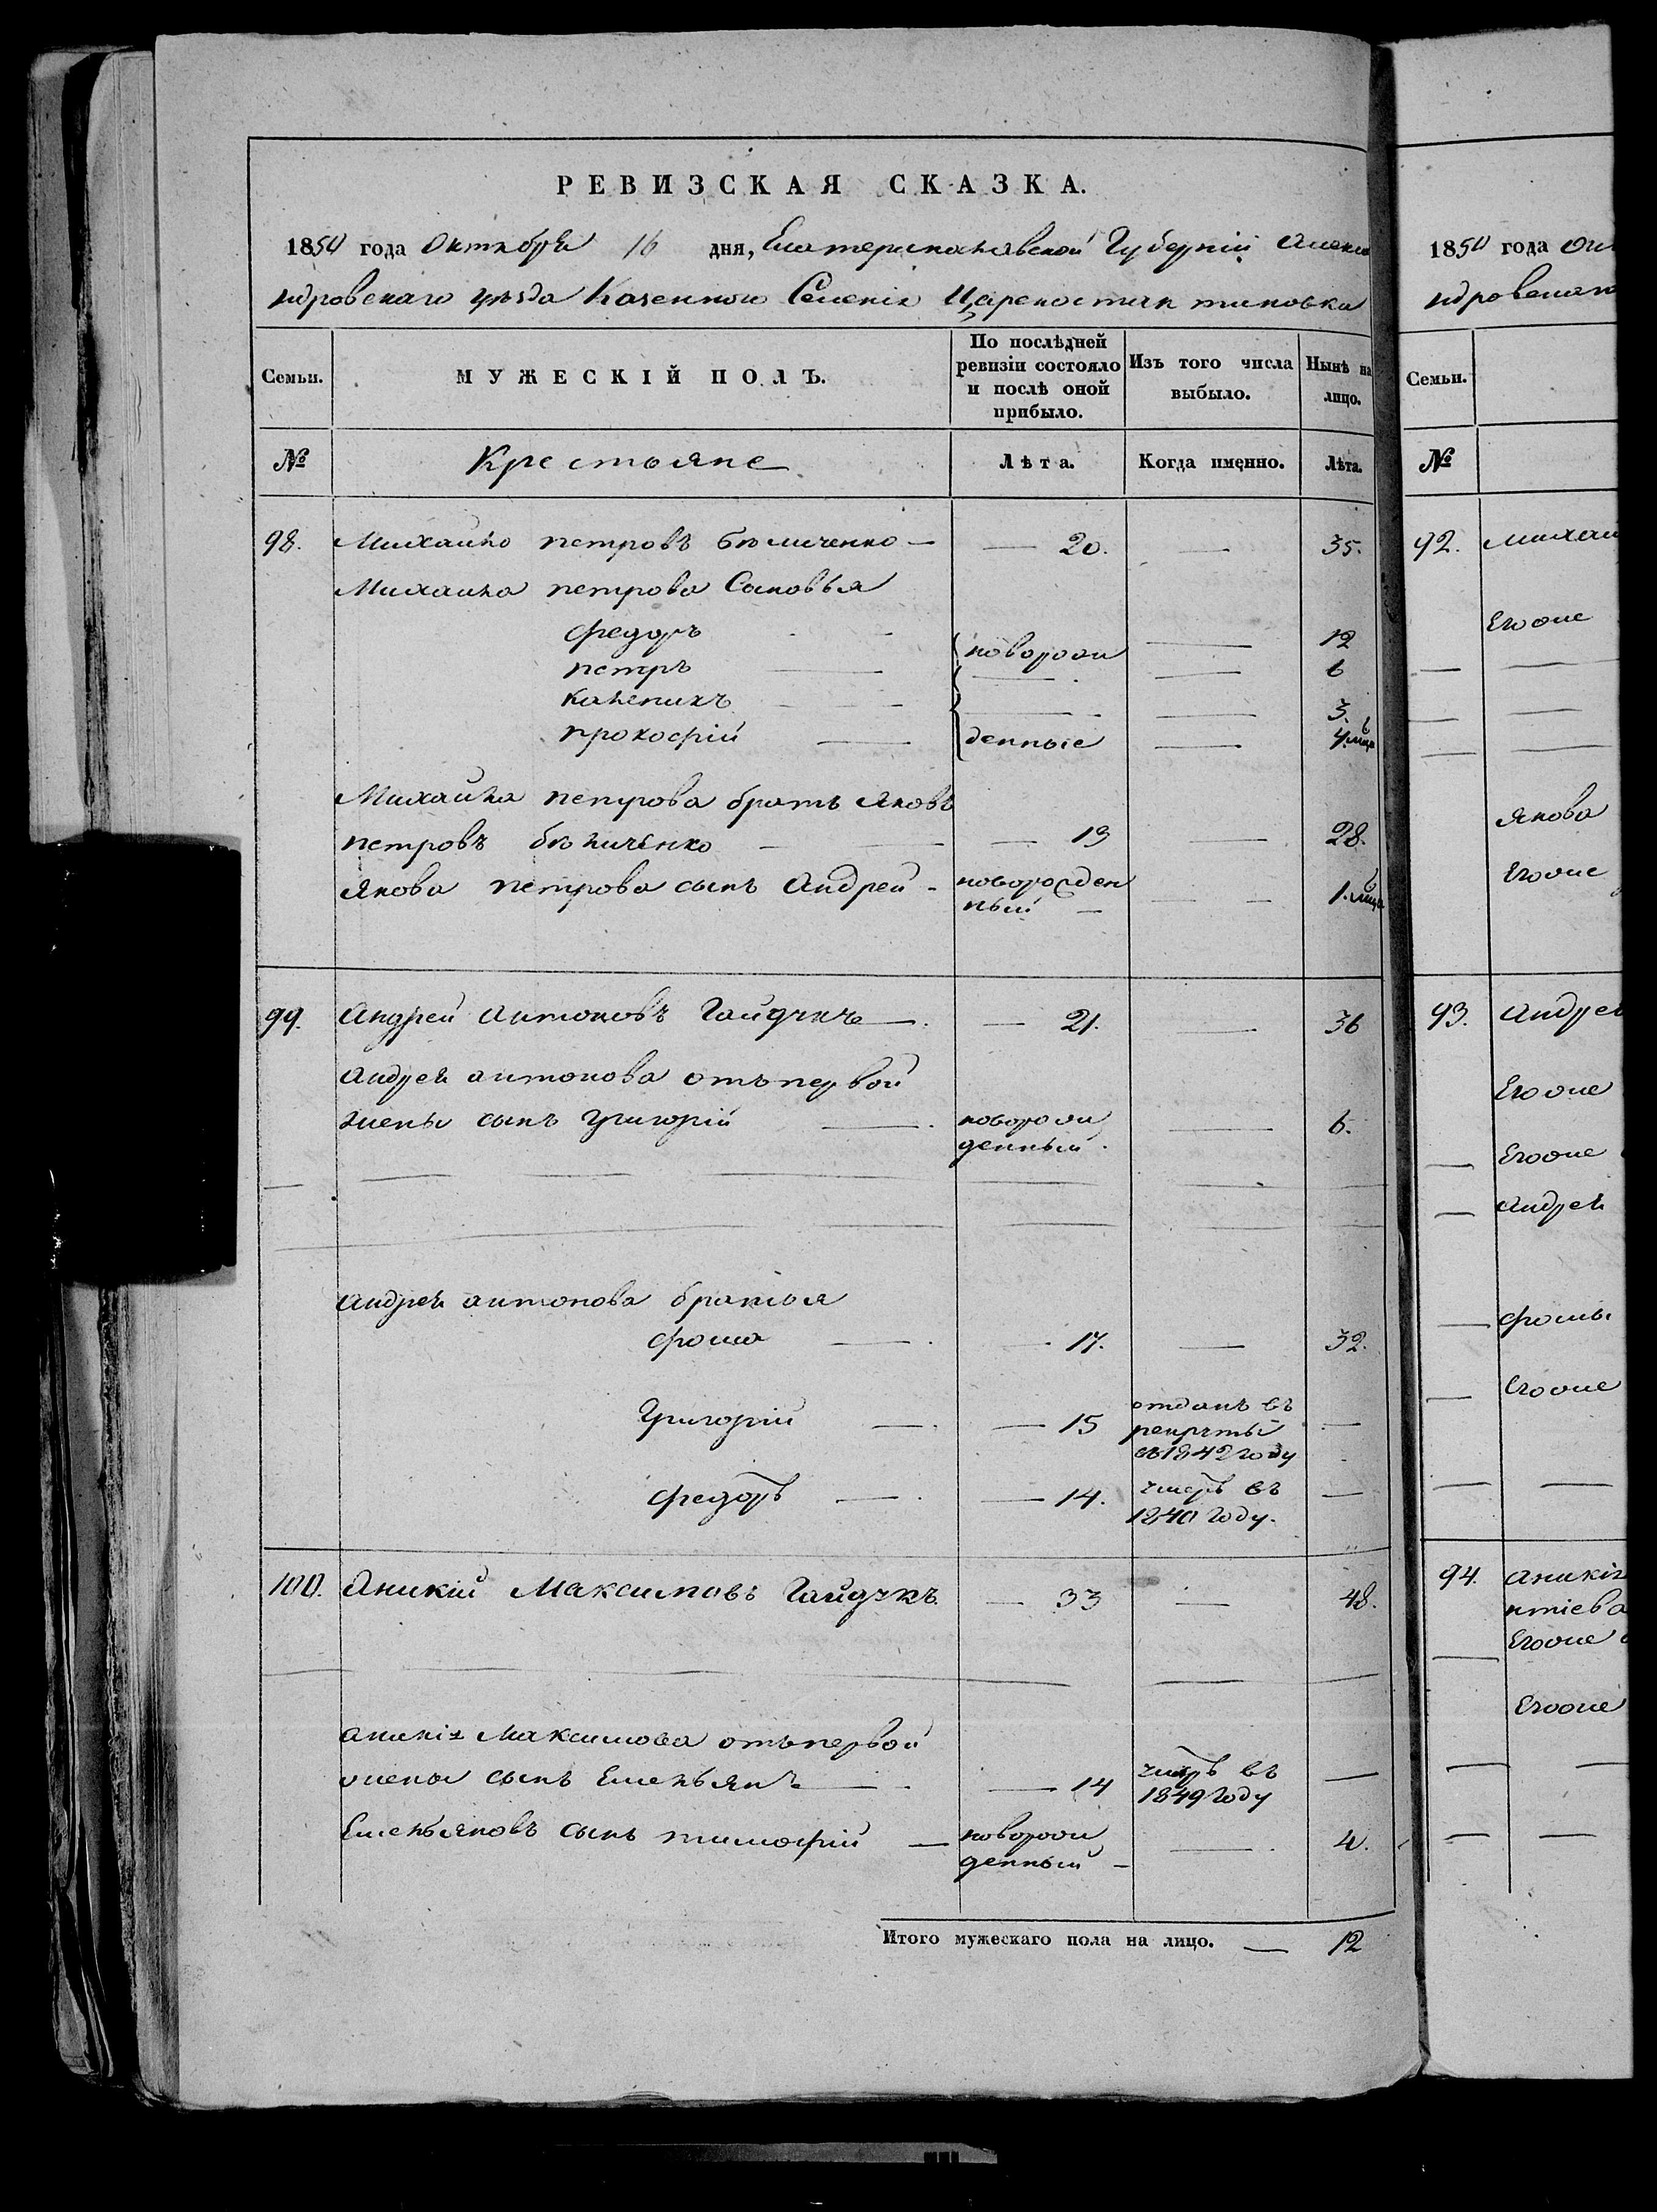 РЕВИЗСКАЯ СКАЗКА.
1850 года Октября 16 дня, Екатеринославской Губерніи Алекса
ндровскаго уѣзда Казенного Селенія Царекостянтиновка
Семьи.
МУЖЕСКІЙ ПОЛЪ.
По послѣдней ревизіи состояло и послѣ оной прибыло.
Изъ того числа выбыло.
Нынѣ на лицо.
№ Крестьяне Лѣта. Когда именно. Лѣта.
98. Михайло петровъ — 20. — 35.
Михайла петрова Сыновья
федоръ — новорож — 12
петръ — — — 6
каленикъ — — — 3.
прокофій — денные — 4 мца
Михайла петрова братъ Яковъ
петровъ — 13 — 28.
Якова петрова сынъ Андрей - новорожден
ный — — 1. мца
99. Андрей Антоновъ Гайдукъ — 21. — 36
Андрея антонова отъ первой
жены сынъ Григорій — новорож — 6.
денный.
Андрея антонова братья
фома — — 17. — 32.
Григорій — — 15 отданъ въ рекруты въ 1842 году —
федоръ — — 14. умеръ въ 1840 году. —
100. Аникій Максимовъ Гайдукъ. — 33 — 48.
аникія Максимова отъ первой
жены сынъ Емельянъ — — 14 умеръ въ 1849 году —
Емельяновъ сынъ тимофій — новорож — 4.
денный —
Итого мужескаго пола на лицо. — 12
1850 года
ндровскаго
Семьи.
№
92. Михаи
Егоже
Якова
Егоже
93. Андрея
Егоже
Егоже
Андрея
фомы
Егоже
94. аникія
нтіева
Егоже
Егоже